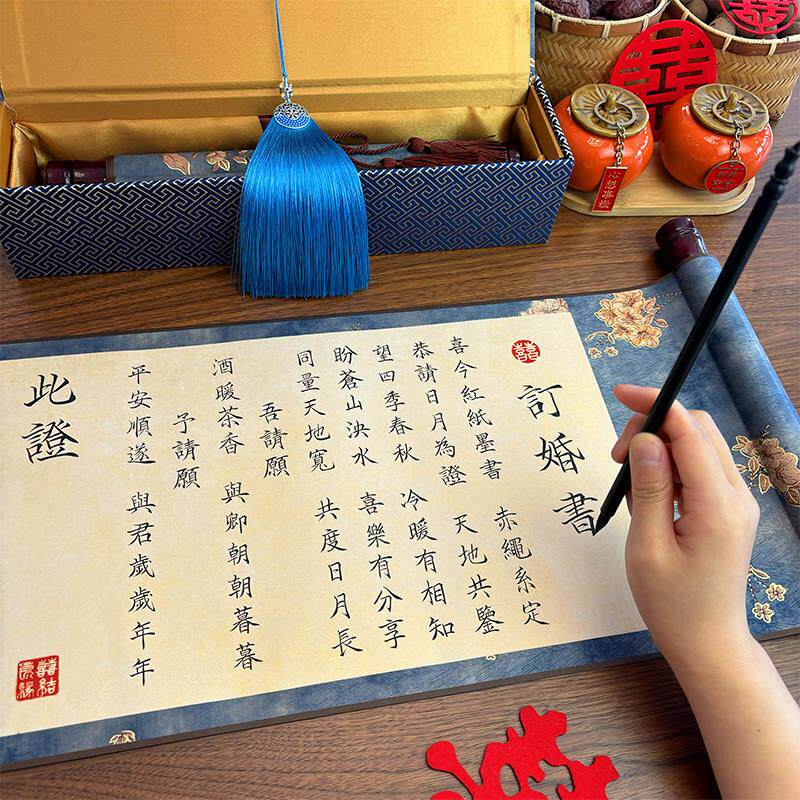 囍
訂婚書
喜今紅紙墨書 赤繩系定
恭請日月為證 天地共鑒
望四季春秋 冷暖有相知
盼蒼山泱水 喜樂有分享
同量天地寬 共度日月長
吾請願
酒暖茶香 與卿朝朝暮暮
予請願
平安順遂 與君歲歲年年
此證
囍結良緣
囍
心想事成